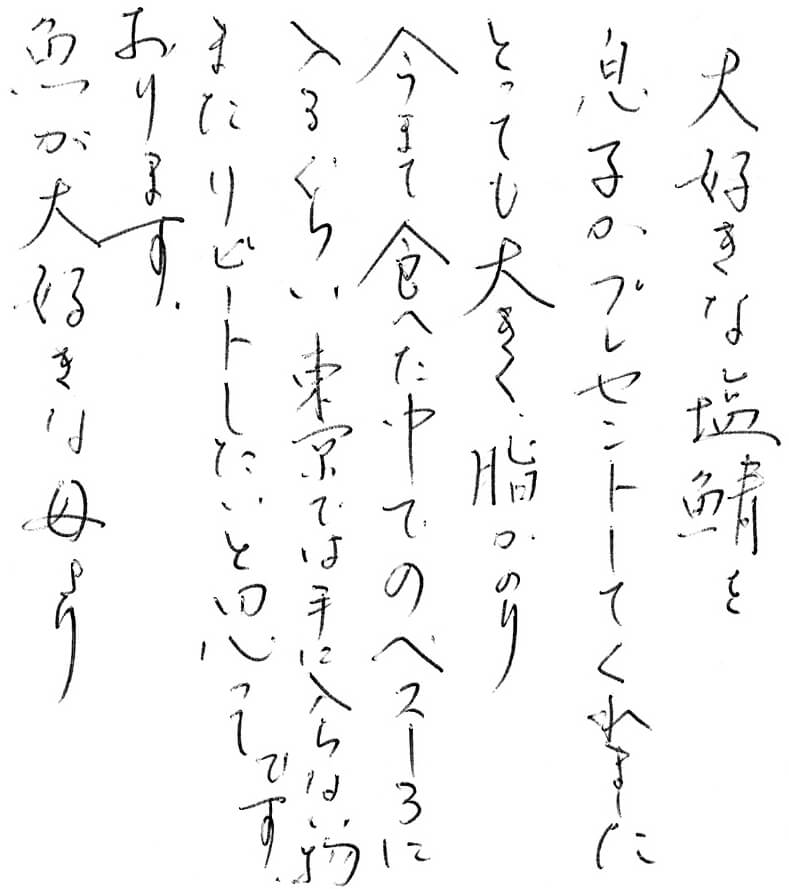 大好きな塩鯖を
息子がプレゼントしてくれました
とっても大きく、脂がのり
今まで食べた中でのベスト3に
入るぐらい東京では手に入らない物です。
またリピートしたいと思って
おります。
魚が大好きな母より